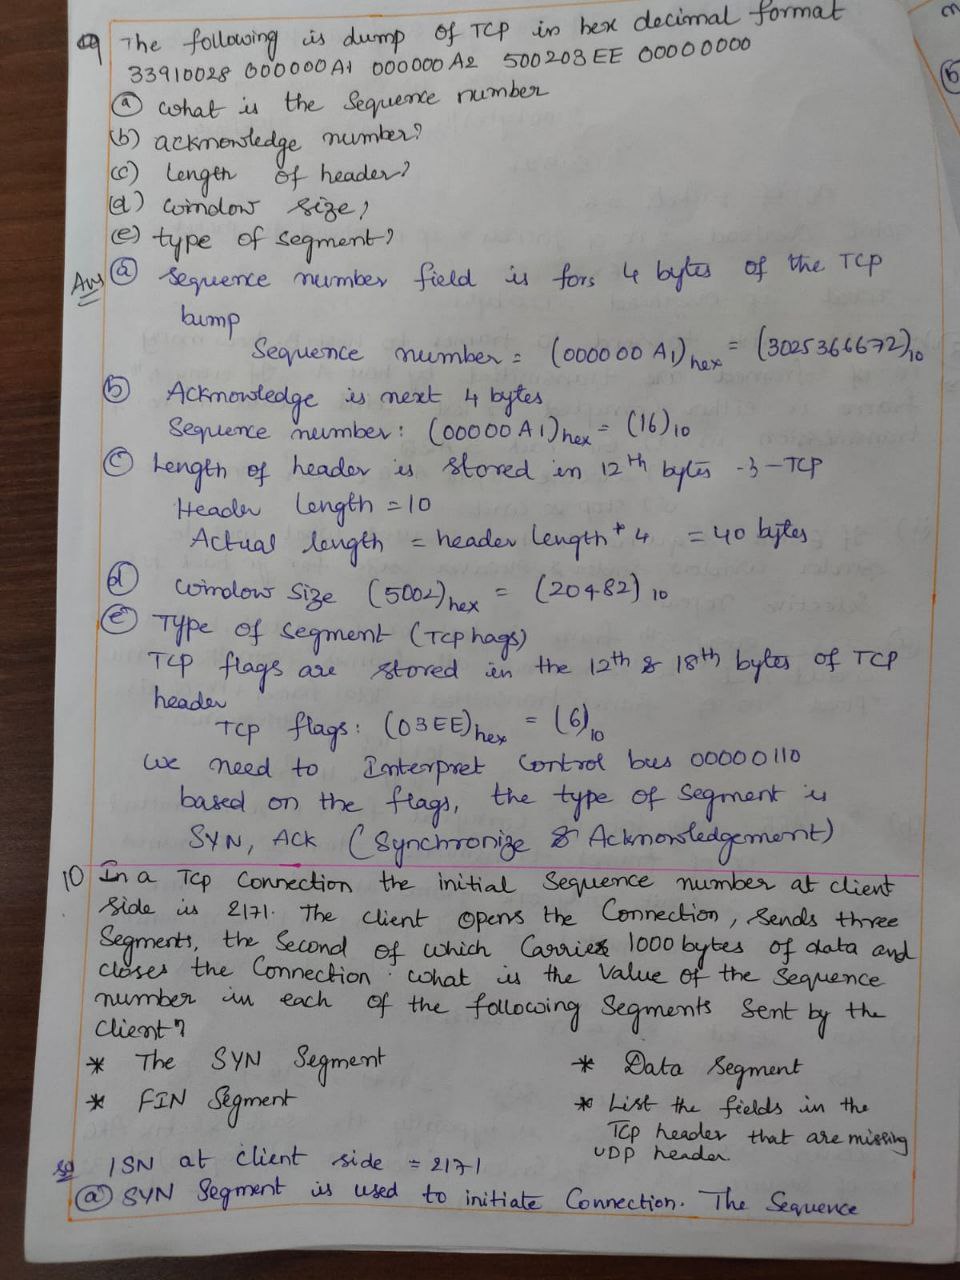 9 The following is dump of TCP in hex decimal format
33910028 000000A1 000000A2 500203EE 00000000
(a) what is the Sequence number
(b) acknowledge number?
(c) Length of header?
(d) window size?
(e) type of segment?
Ans (a) Sequence number field is fors 4 bytes of the TCP
bump
Sequence number = (000000A1)hex = (3025366672)10
(b) Acknowledge is next 4 bytes
Sequence number: (00000A1)hex = (16)10
(c) Length of header is stored in 12th bytes -3-TCP
Header length = 10
Actual length = header length * 4 = 40 bytes
(d) window Size (5002)hex = (20482)10
(e) Type of segment (TCP hags)
TCP flags are stored in the 12th & 18th bytes of TCP
header
TCP flags: (03EE)hex = (6)10
we need to Interpret Control bus 00000110
based on the flags, the type of Segment is
SYN, ACK (Synchronize & Acknowledgement)
10 In a TCP Connection the initial Sequence number at client
side is 2171. The client opens the Connection, sends three
Segments, the Second of which Carries 1000 bytes of data and
closes the Connection. what is the Value of the Sequence
number in each of the following Segments Sent by the
Client?
* The SYN Segment * Data Segment
* FIN Segment * List the fields in the
TCP header that are missing
UDP header.
so ISN at client side = 2171
(a) SYN Segment is used to initiate Connection. The Sequence